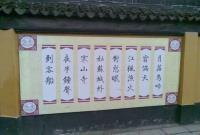 月落烏啼
霜滿天
江楓漁火
對愁眠
姑蘇城外
寒山寺
夜半鐘聲
到客船